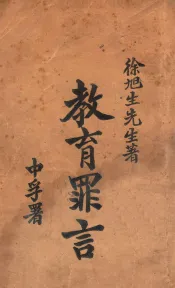 徐旭生先生著
教育罪言
中孚署